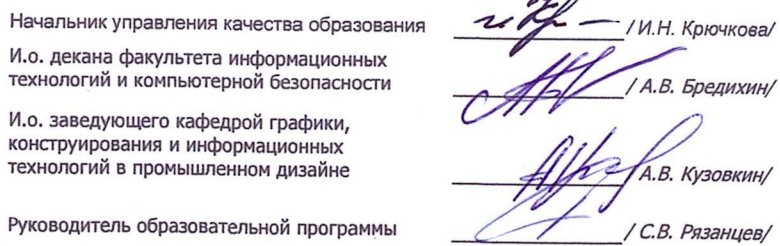 Начальник управления качества образования / И.Н. Крючкова/
И.о. декана факультета информационных
технологий и компьютерной безопасности / А.В. Бредихин/
И.о. заведующего кафедрой графики,
конструирования и информационных
технологий в промышленном дизайне / А.В. Кузовкин/
Руководитель образовательной программы / С.В. Рязанцев/